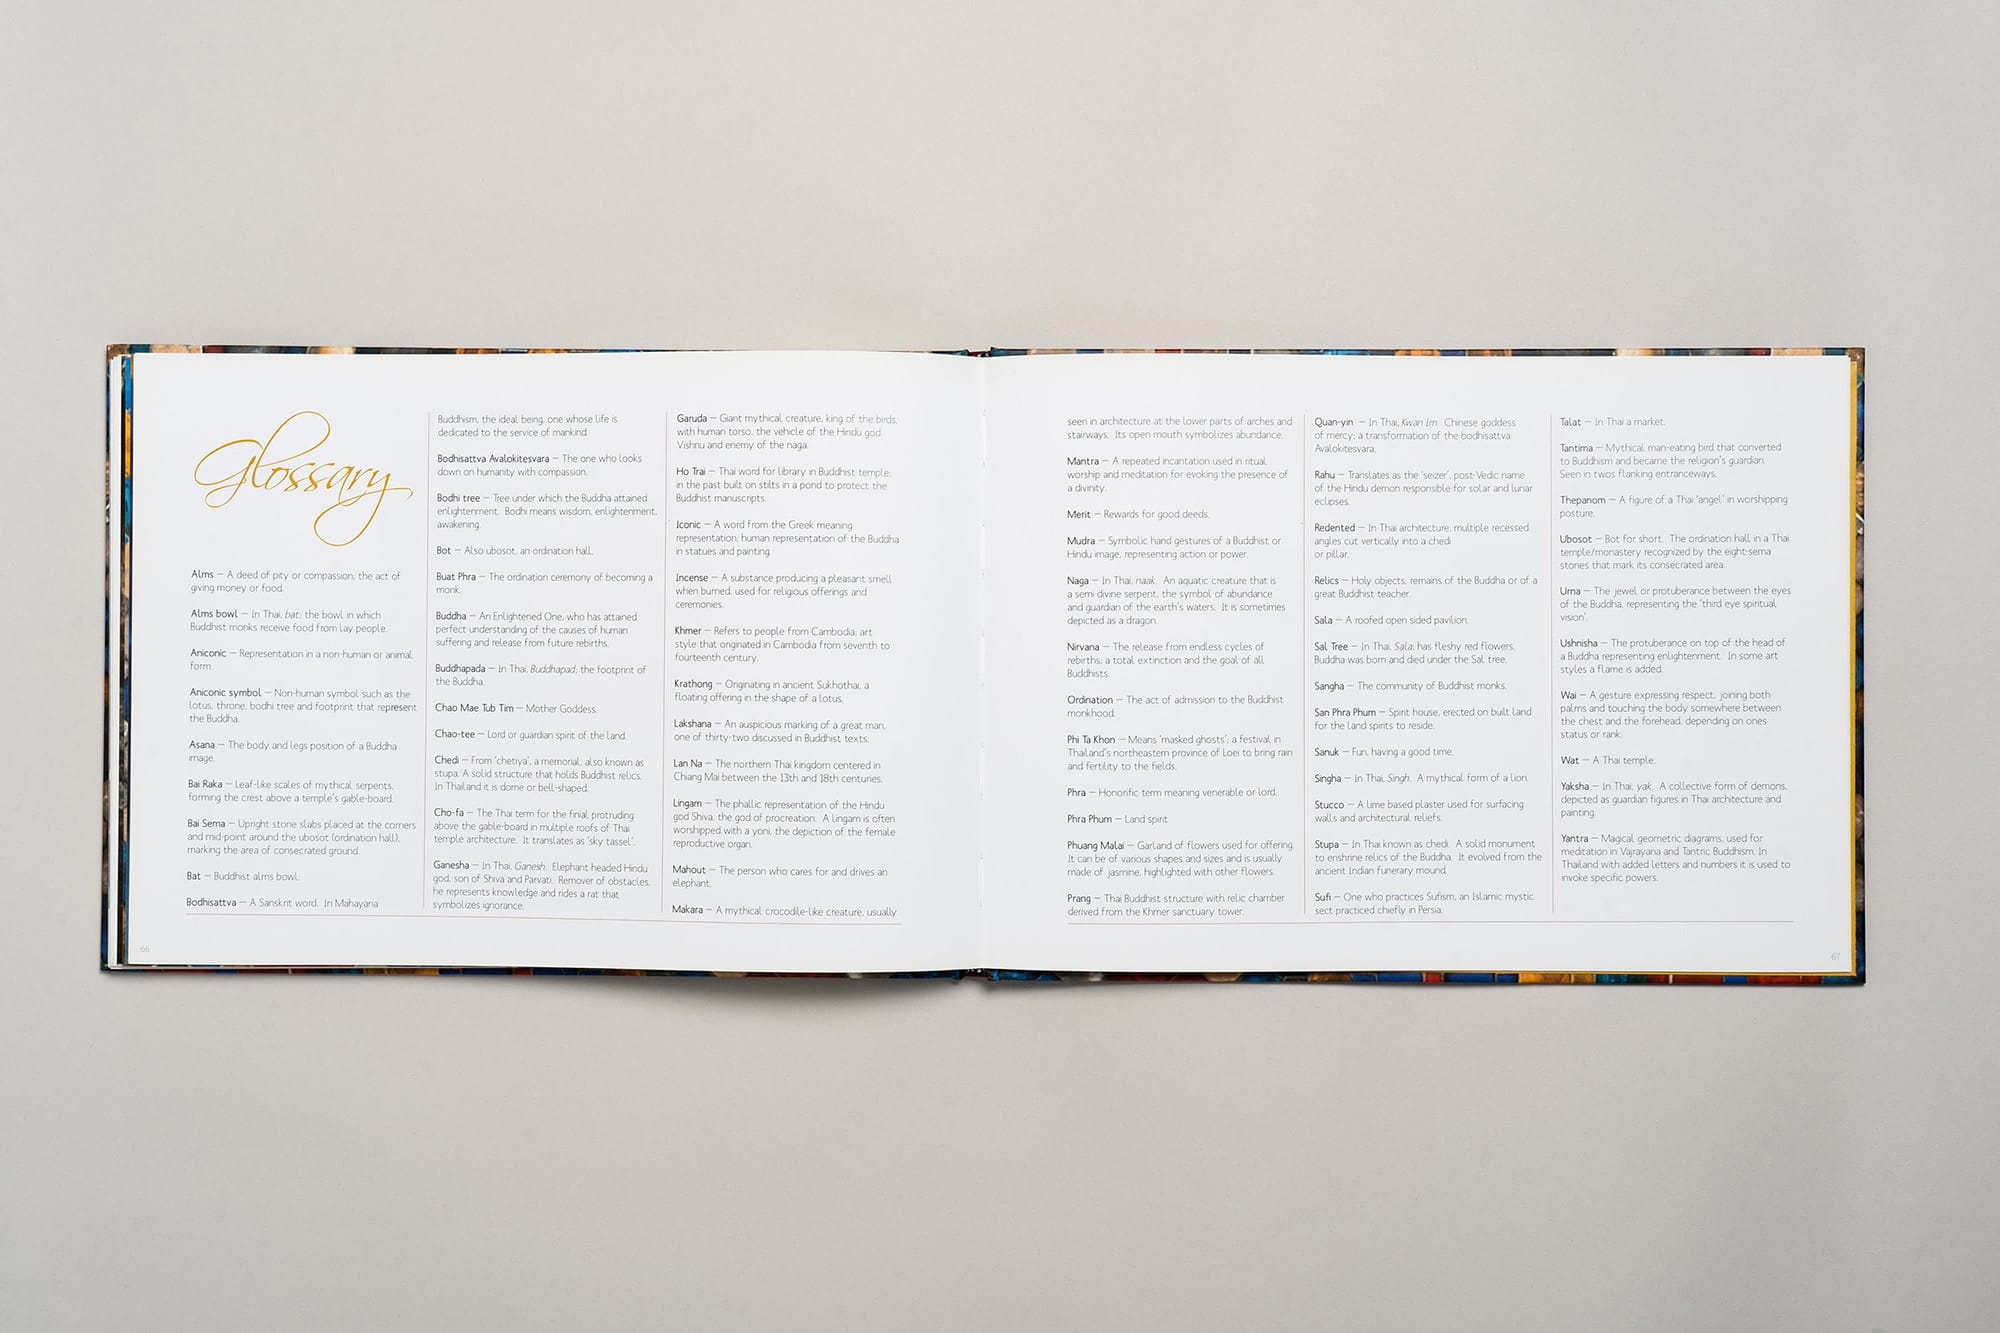 Glossary
Alms – A deed of pity or compassion; the act of
giving money or food.
Alms bowl – In Thai, bat; the bowl in which
Buddhist monks receive food from lay people.
Aniconic – Representation in a non-human or animal
form.
Aniconic symbol – Non-human symbol such as the
lotus, throne, bodhi tree and footprint that represent
the Buddha.
Asana – The body and legs position of a Buddha
image.
Bai Raka – Leaf-like scales of mythical serpents,
forming the crest above a temple's gable-board.
Bai Sema – Upright stone slabs placed at the corners
and mid-point around the ubosot (ordination hall),
marking the area of consecrated ground.
Bat – Buddhist alms bowl.
Bodhisattva – A Sanskrit word. In Mahayana
Buddhism, the ideal being, one whose life is
dedicated to the service of mankind.
Bodhisattva Avalokitesvara – The one who looks
down on humanity with compassion.
Bodhi tree – Tree under which the Buddha attained
enlightenment. Bodhi means wisdom, enlightenment,
awakening.
Bot – Also ubosot, an ordination hall.
Buat Phra – The ordination ceremony of becoming a
monk.
Buddha – An Enlightened One, who has attained
perfect understanding of the causes of human
suffering and release from future rebirths.
Buddhapada – In Thai, Buddhapad; the footprint of
the Buddha.
Chao Mae Tub Tim – Mother Goddess.
Chao-tee – Lord or guardian spirit of the land.
Chedi – From 'chetiya', a memorial, also known as
stupa. A solid structure that holds Buddhist relics.
In Thailand it is dome or bell-shaped.
Cho-fa – The Thai term for the finial protruding
above the gable-board in multiple roofs of Thai
temple architecture. It translates as 'sky tassel'.
Ganesha – In Thai, Ganesh. Elephant headed Hindu
god, son of Shiva and Parvati. Remover of obstacles,
he represents knowledge and rides a rat that
symbolizes ignorance.
Garuda – Giant mythical creature, king of the birds,
with human torso, the vehicle of the Hindu god
Vishnu and enemy of the naga.
Ho Trai – Thai word for library in Buddhist temple;
in the past built on stilts in a pond to protect the
Buddhist manuscripts.
Iconic – A word from the Greek meaning
representation; human representation of the Buddha
in statues and painting.
Incense – A substance producing a pleasant smell
when burned, used for religious offerings and
ceremonies.
Khmer – Refers to people from Cambodia; art
style that originated in Cambodia from seventh to
fourteenth century.
Krathong – Originating in ancient Sukhothai, a
floating offering in the shape of a lotus.
Lakshana – An auspicious marking of a great man,
one of thirty-two discussed in Buddhist texts.
Lan Na – The northern Thai kingdom centered in
Chiang Mai between the 13th and 18th centuries.
Lingam – The phallic representation of the Hindu
god Shiva, the god of procreation. A lingam is often
worshipped with a yoni, the depiction of the female
reproductive organ.
Mahout – The person who cares for and drives an
elephant.
Makara – A mythical crocodile-like creature, usually
66
seen in architecture at the lower parts of arches and
stairways. Its open mouth symbolizes abundance.
Mantra – A repeated incantation used in ritual,
worship and meditation for evoking the presence of
a divinity.
Merit – Rewards for good deeds.
Mudra – Symbolic hand gestures of a Buddhist or
Hindu image, representing action or power.
Naga – In Thai, naak. An aquatic creature that is
a semi divine serpent, the symbol of abundance
and guardian of the earth's waters. It is sometimes
depicted as a dragon.
Nirvana – The release from endless cycles of
rebirths; a total extinction and the goal of all
Buddhists.
Ordination – The act of admission to the Buddhist
monkhood.
Phi Ta Khon – Means 'masked ghosts'; a festival in
Thailand's northeastern province of Loei to bring rain
and fertility to the fields.
Phra – Honorific term meaning venerable or lord.
Phra Phum – Land spirit.
Phuang Malai – Garland of flowers used for offering.
It can be of various shapes and sizes and is usually
made of jasmine, highlighted with other flowers.
Prang – Thai Buddhist structure with relic chamber
derived from the Khmer sanctuary tower.
Quan-yin – In Thai, Kwan Im. Chinese goddess
of mercy; a transformation of the bodhisattva
Avalokitesvara.
Rahu – Translates as the 'seizer', post-Vedic name
of the Hindu demon responsible for solar and lunar
eclipses.
Redented – In Thai architecture, multiple recessed
angles cut vertically into a chedi
or pillar.
Relics – Holy objects; remains of the Buddha or of a
great Buddhist teacher.
Sala – A roofed open sided pavilion.
Sal Tree – In Thai, Sala; has fleshy red flowers.
Buddha was born and died under the Sal tree.
Sangha – The community of Buddhist monks.
San Phra Phum – Spirit house, erected on built land
for the land spirits to reside.
Sanuk – Fun, having a good time.
Singha – In Thai, Singh. A mythical form of a lion.
Stucco – A lime based plaster used for surfacing
walls and architectural reliefs.
Stupa – In Thai known as chedi. A solid monument
to enshrine relics of the Buddha. It evolved from the
ancient Indian funerary mound.
Sufi – One who practices Sufism, an Islamic mystic
sect practiced chiefly in Persia.
Talat – In Thai a market.
Tantima – Mythical man-eating bird that converted
to Buddhism and became the religion's guardian.
Seen in twos flanking entranceways.
Thepanom – A figure of a Thai 'angel' in worshipping
posture.
Ubosot – Bot for short. The ordination hall in a Thai
temple/monastery recognized by the eight-sema
stones that mark its consecrated area.
Urna – The jewel or protuberance between the eyes
of the Buddha, representing the 'third eye spiritual
vision'.
Ushnisha – The protuberance on top of the head of
a Buddha representing enlightenment. In some art
styles a flame is added.
Wai – A gesture expressing respect, joining both
palms and touching the body somewhere between
the chest and the forehead, depending on ones
status or rank.
Wat – A Thai temple.
Yaksha – In Thai, yak. A collective form of demons,
depicted as guardian figures in Thai architecture and
painting.
Yantra – Magical geometric diagrams, used for
meditation in Vajrayana and Tantric Buddhism. In
Thailand with added letters and numbers it is used to
invoke specific powers.
67